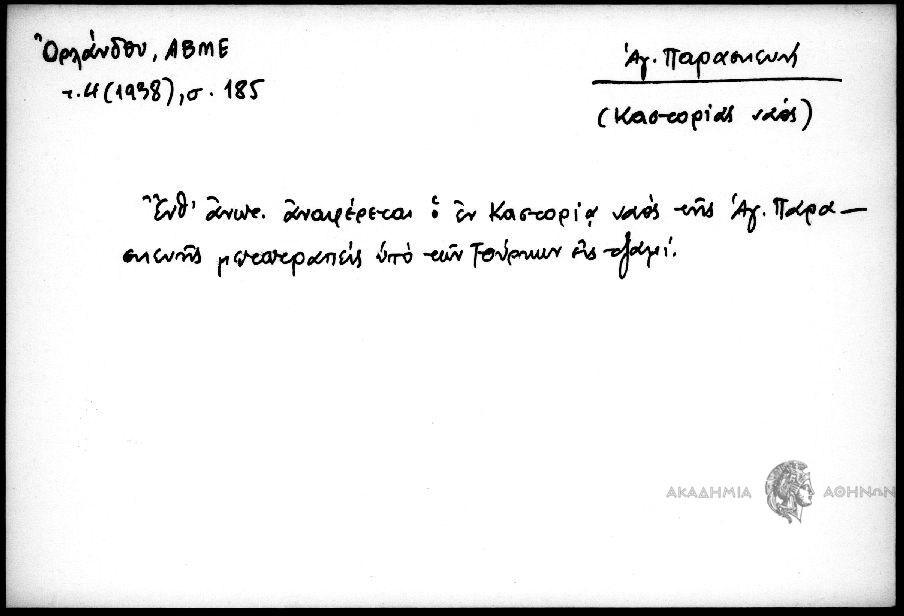 Ὀρλάνδου, ΑΒΜΕ
τ. Δ (1938), σ. 185
Ἁγ. Παρασκευή
(Καστορίας ναός)
Ἔνθ' ἄνωτ. ἀναφέρεται ὁ ἐν Καστορίᾳ ναός τῆς Ἁγ. Παρα—
σκευῆς μετατραπείς ὑπό τῶν Τούρκων εἰς τζαμί.
ΑΚΑΔΗΜΙΑ ΑΘΗΝΩΝ